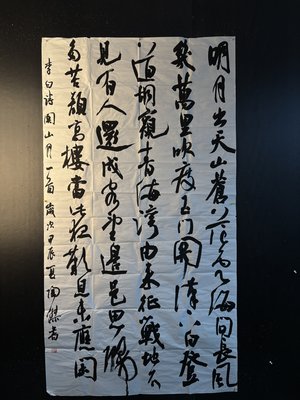 明月出天山蒼茫雲海間長風
幾萬里吹度玉門關漢下白登
道胡窺青海灣由来征戰地不
見有人還戍客望邊邑思歸
多苦顏高樓當此夜歎息未應閑
李白詩關山月一首歲次甲辰夏